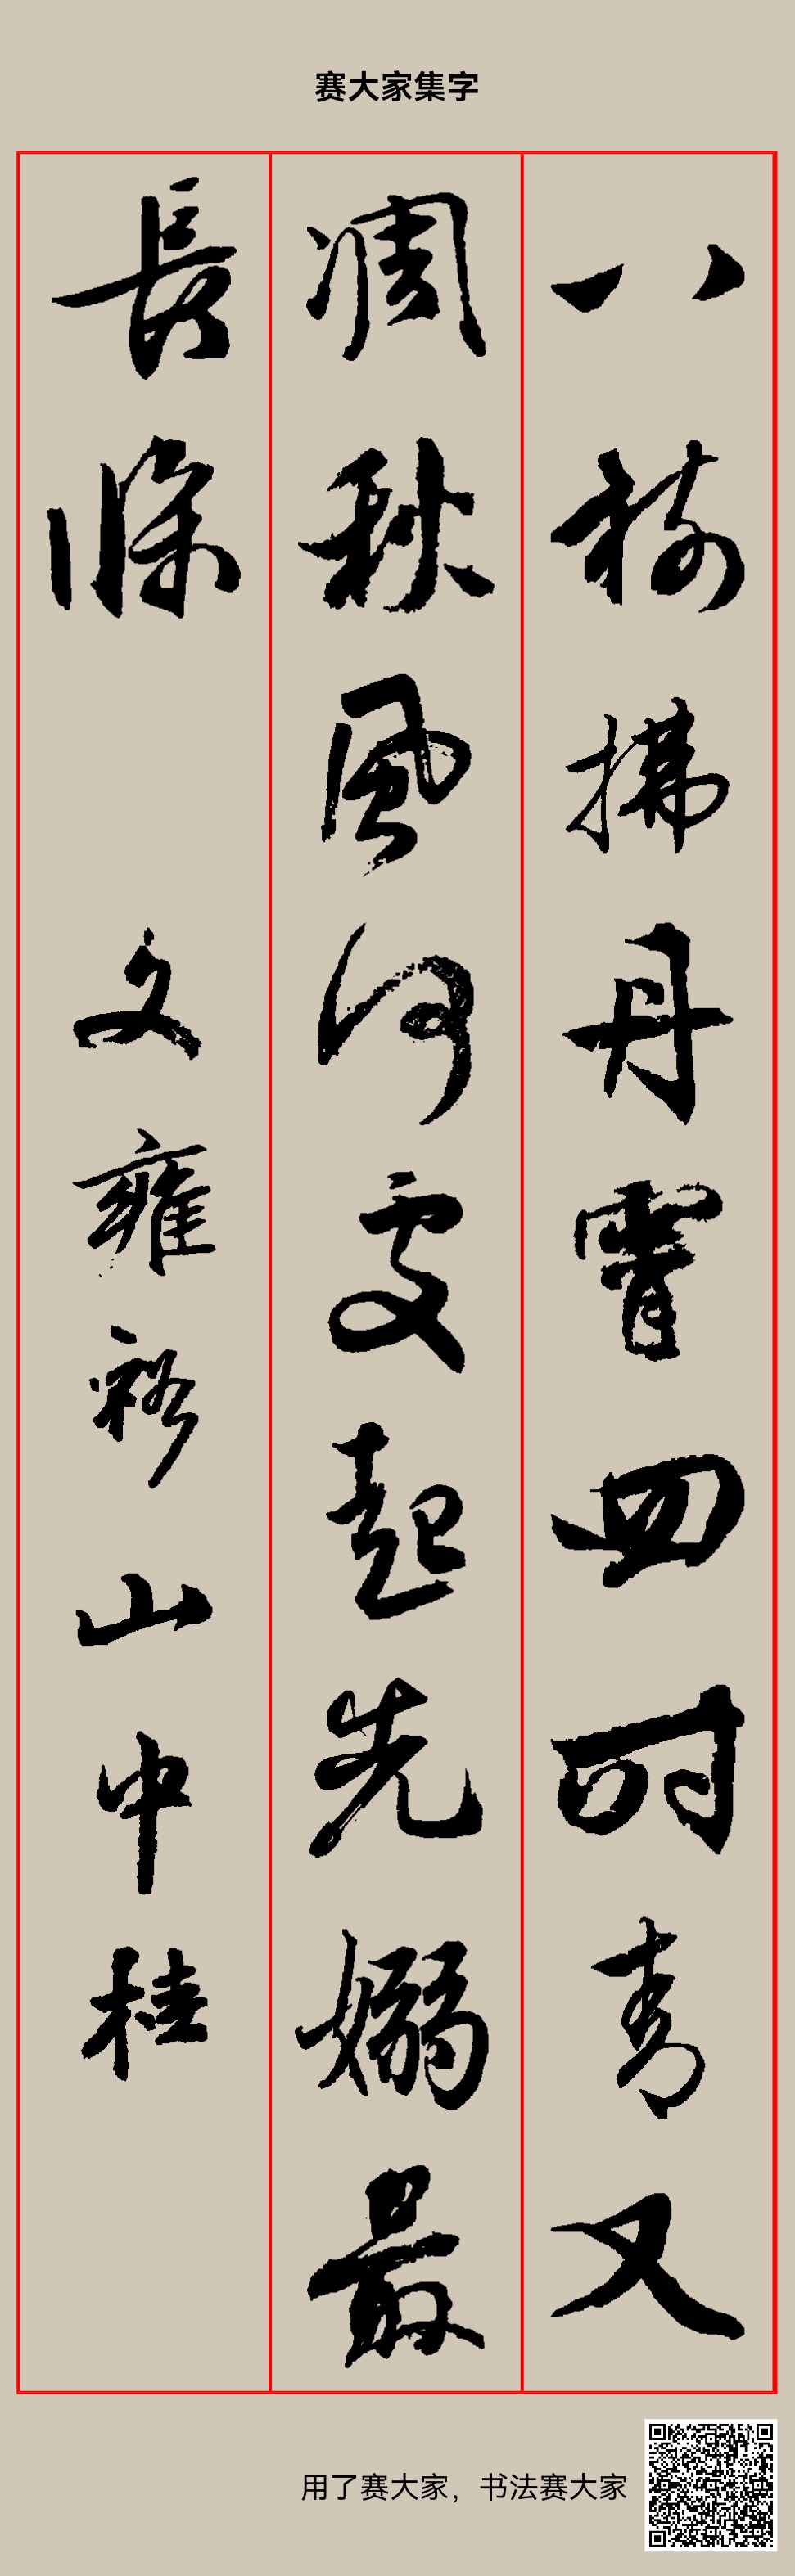 赛大家集字
八树拂丹霄四时青又
凋秋风何处起先嫋最
長條
文雍裕山中桂
用了赛大家，书法赛大家